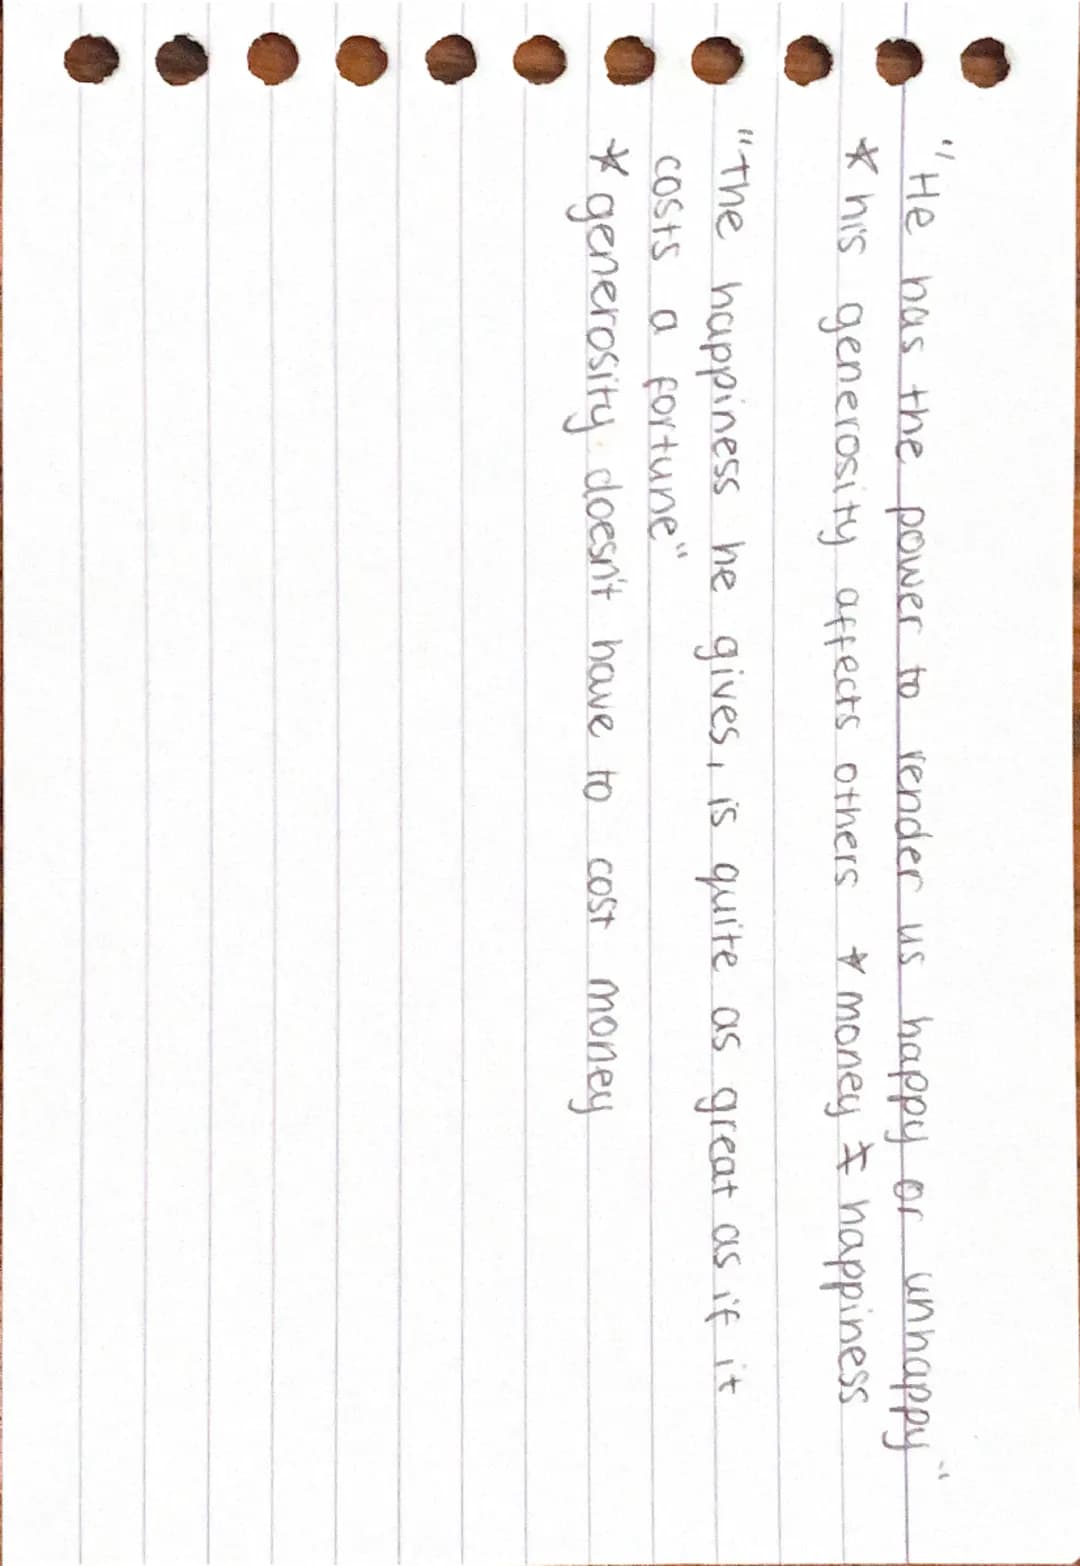 "He has the power to render us happy or unhappy"
* his generosity affects others * money ≠ happiness
"The happiness he gives, is quite as great as if it
costs a fortune"
* generosity doesn't have to cost money